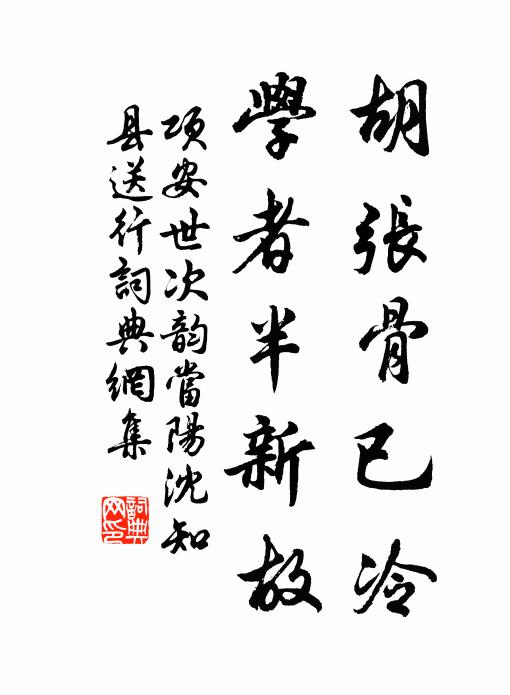 胡張骨已冷
學者半新故
項安世次韵當陽沈知
县送行詞典網集
詞典
网印